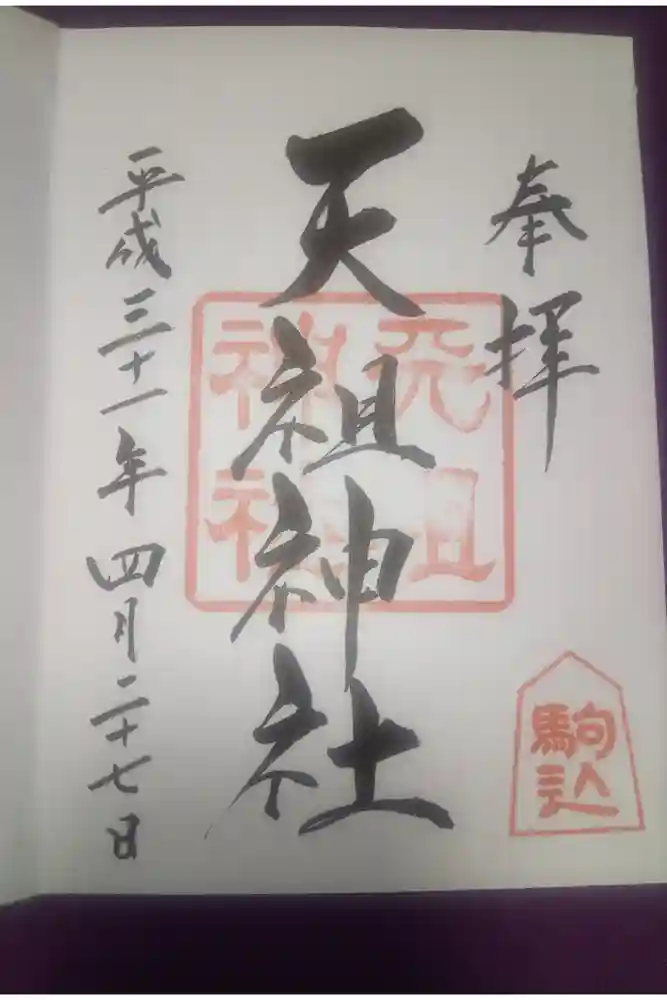 奉拝
駒込
天祖神社
天祖神社
平成三十一年四月二十七日